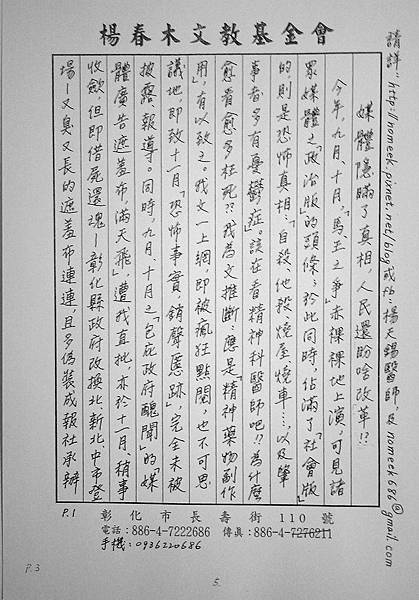 楊春木文教基金會
請詳：http://nomeek.pixnet.net/blog或fb：楊天錫醫師，及nomeek686@gmail.com
媒體隱瞞了真相，人民還盼啥改革!?
今年，九月、十月，「馬、王之爭」赤裸裸地上演，可見諸
眾媒體之「政治版」的頭條；於此同時，佔滿了「社會版」
的，則是恐怖真相：自殺、他殺、燒屋、燒車…，以及肇
事者多有憂鬱症。該在看精神科醫師吧!?為什麼
愈看愈多枉死??我為文推斷：應是「精神藥物副作
用」有以致之。我文一上網，即被瘋狂點閱，也不可思
議地即致十一月「恐怖事實，銷聲匿跡」，完全未被
披露、報導。同時，九月、十月之「包庇政府醜聞」的「媒
體廣告遮羞布，滿天飛」，遭我直批亦於十一月、稍事
收歛，但即借屍還魂－彰化縣政府改換北、新北、中市登
場－又臭又長的遮羞布連連，且多偽裝成報社承辦
P.1
彰化市長壽街110號
電話：886-4-7222686 傳真：886-4-7276211
手機：0936220686
P.3
5